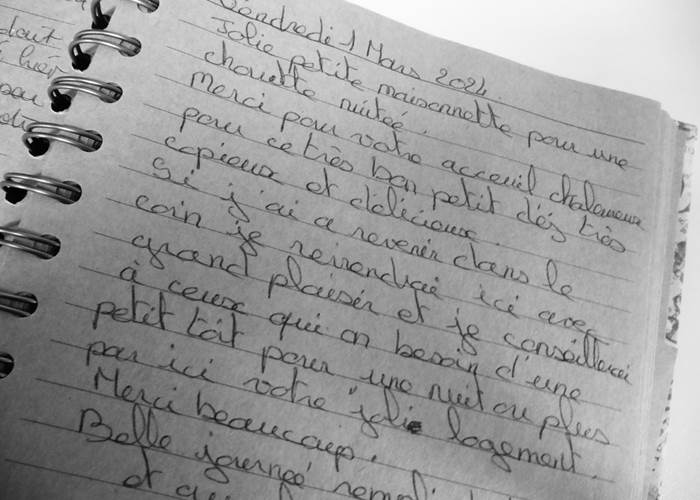 dout
Vendredi 1 Mars 2024.
Jolie petite maisonnette pour une
chouette nuitée.
Merci pour votre acceuil chaleureux
pour ce très bon petit déj très
copieux et délicieux.
Si j'ai a revenir dans le
coin je reviendrai ici avec
grand plaisir et je conseillerai
à ceux qui on besoin d'une
petit toit pour une nuit ou plus
par ici votre jolie logement.
Merci beaucoup.
Belle journée
et